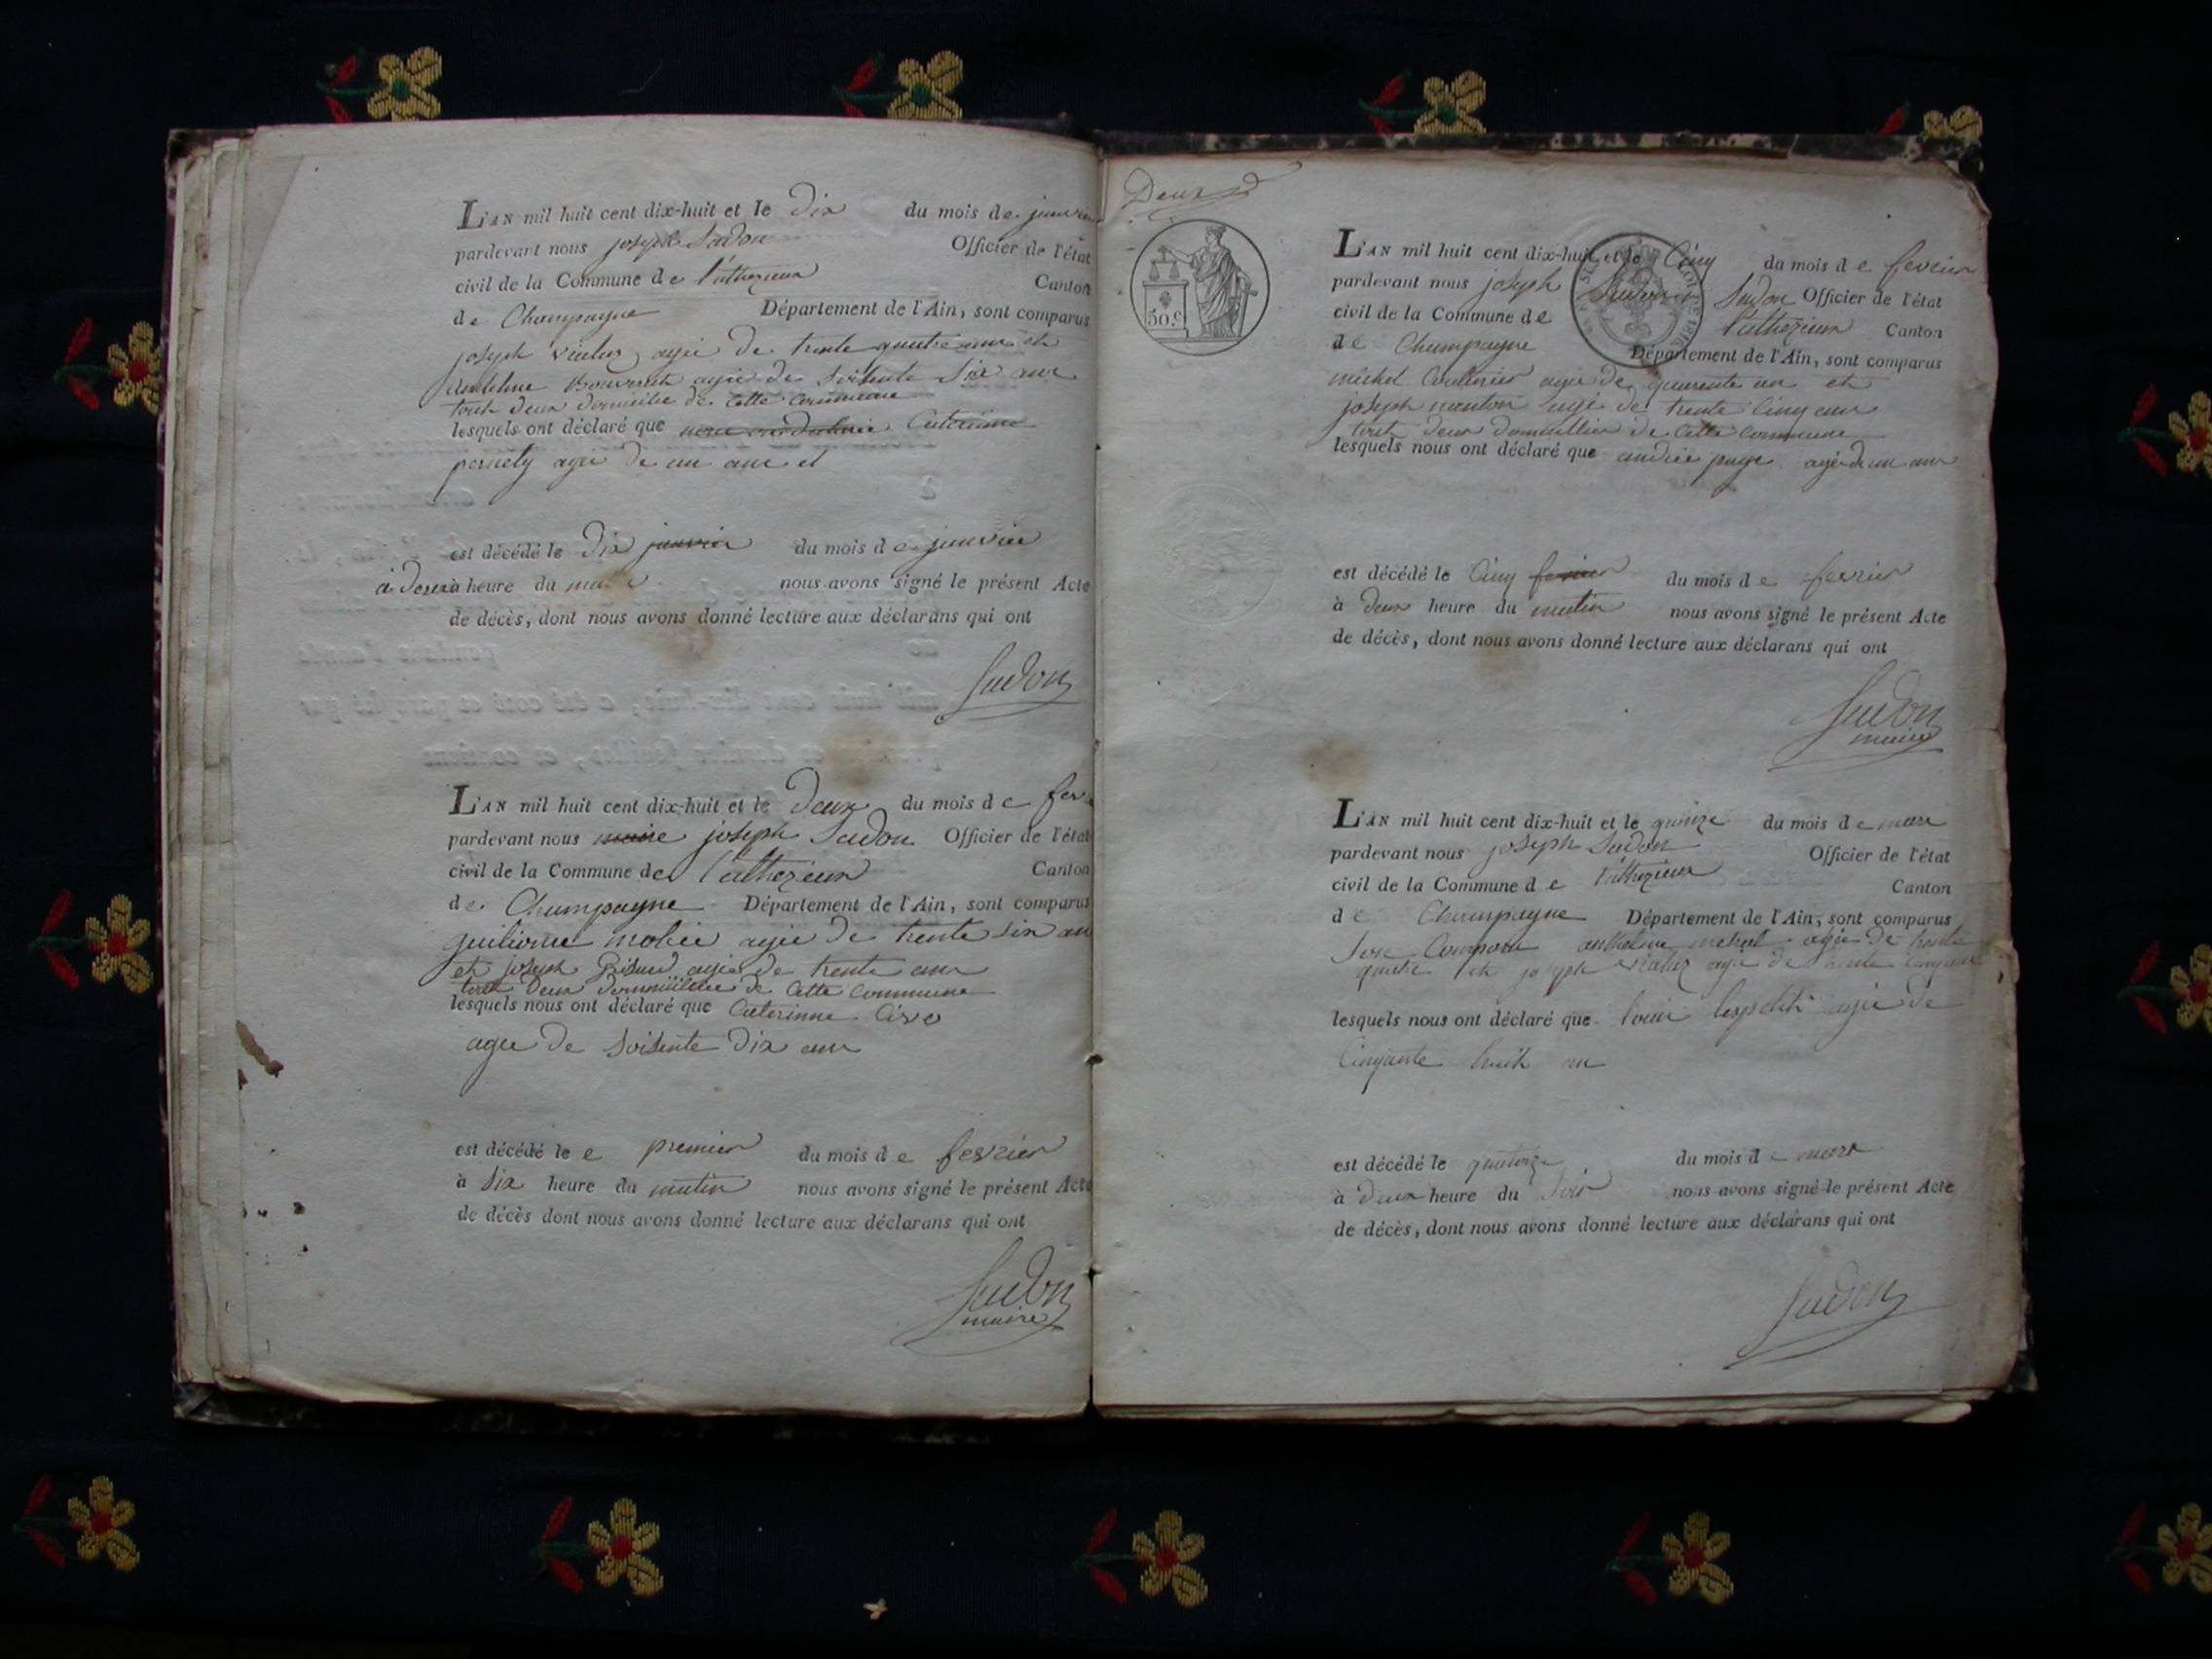 L'AN mil huit cent dix-huit et le Dix du mois de janvier
pardevant nous joseph Sudon Officier de l'état
civil de la Commune de Luthezieu Canton
de Champagne Département de l'Ain, sont comparus
joseph vialuz agée de trente quatre ans et
antelme agée de soisente Six ans
tout deux domicilie de Cette Commune
lesquels ont déclaré que Caterinne
pernety agée de un ans et
est décédé le Dix janvier du mois de janvier
à heure du nous avons signé le présent Acte
de décès, dont nous avons donné lecture aux déclarans qui ont
Sudon
L'AN mil huit cent dix-huit et le Deux du mois de
pardevant nous maire joseph Sudon Officier de l'état
civil de la Commune de Luthezieu Canton
de Champagne Département de l'Ain, sont comparus
agée de trente six an
et joseph agée de trente ans
tout Deux de Cette Commune
lesquels nous ont déclaré que Caterinne
agee de soisente Dix ans
est décédé le e premier du mois de fevrier
à Six heure du matin nous avons signé le présent Acte
de décès dont nous avons donné lecture aux déclarans qui ont
Sudon
maire
Deux
50.c
L'AN mil huit cent dix-huit et le Cinq du mois de fevrier
pardevant nous joseph Sudon Sudon Officier de l'état
civil de la Commune de Luthezieu Canton
de Champagne Département de l'Ain, sont comparus
michel agée de quarente un et
joseph agé de trente Cinq ans
tout deux de Cette Commune
lesquels nous ont déclaré que andrée puge agée de un ans
est décédé le Cinq fevrier du mois de fevrier
à deux heure du matin nous avons signé le présent Acte
de décès, dont nous avons donné lecture aux déclarans qui ont
Sudon
maire
L'AN mil huit cent dix-huit et le quinze du mois de mars
pardevant nous joseph Sudon Officier de l'état
civil de la Commune de Luthezieu Canton
de Champagne Département de l'Ain, sont comparus
anthelme agée de trente
quatre et joseph vialuz agée de
lesquels nous ont déclaré que agée de
Cinqante huit an
est décédé le quatorze du mois de mars
à deux heure du Soir nous avons signé le présent Acte
de décès, dont nous avons donné lecture aux déclarans qui ont
Sudon